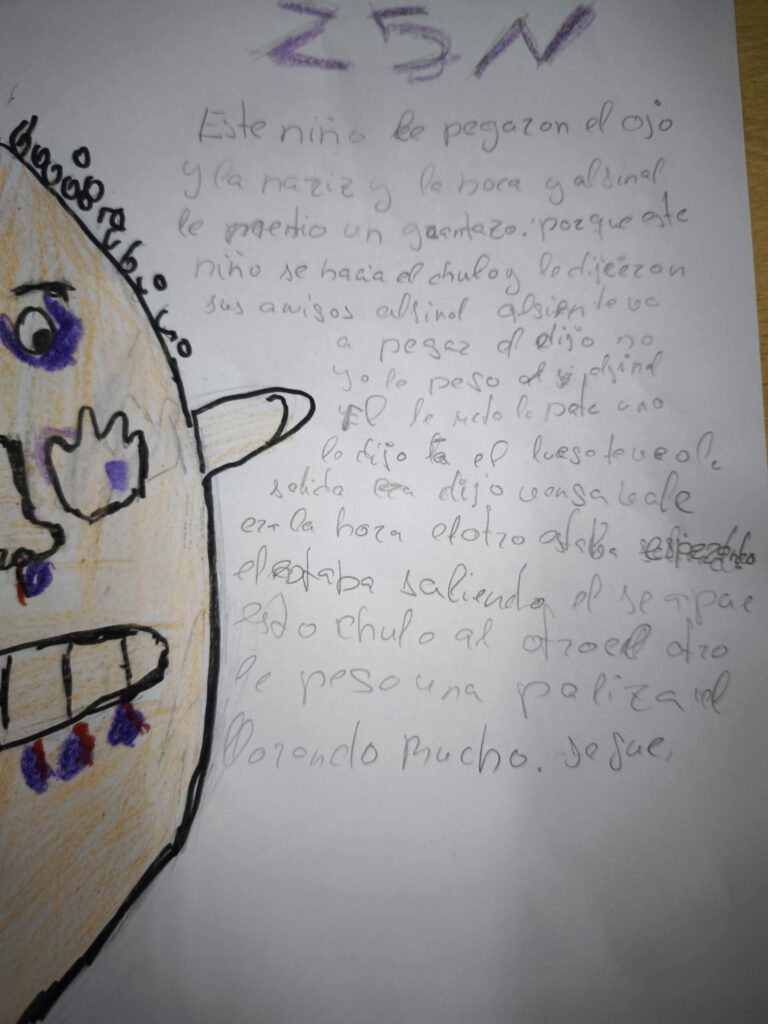 Z5N
Este niño le pegaron el ojo
y la nariz y la boca y alfinal
le metio un guantazo. porque este
niño se hacia el chulo y lo dijeron
sus amigos alfinal alsien te va
a pegar el dijo no
yo lo peso alfinal
El le meto la pate uno
lo dijo el luego te veo
salida dijo venga vale
era la hora el otro estaba
el estaba saliendo el se
esto chulo al otro el otro
le peso una paliza el
llorando mucho. se fue.